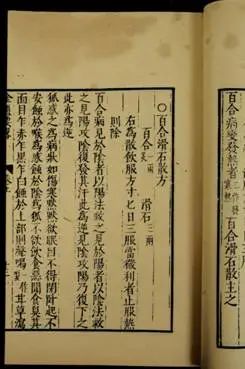 百合病變發熱者一作發寒熱百合滑石散主之
〇百合滑石散方
百合炙一兩 滑石三兩
右為散飲服方寸匕日三服當微利者止服熱
則除
百合病見於陰者以陽法救之見於陽者以陰法救
之見陽攻陰復發其汗此為逆見陰攻陽乃復下之
此亦為逆
狐惑之為病狀如傷寒默默欲眠目不得閉臥起不
安蝕於喉為惑蝕於陰為狐不欲飲食惡聞食臭其
面目乍赤乍黑乍白蝕於上部則聲喝一作嗄甘草瀉